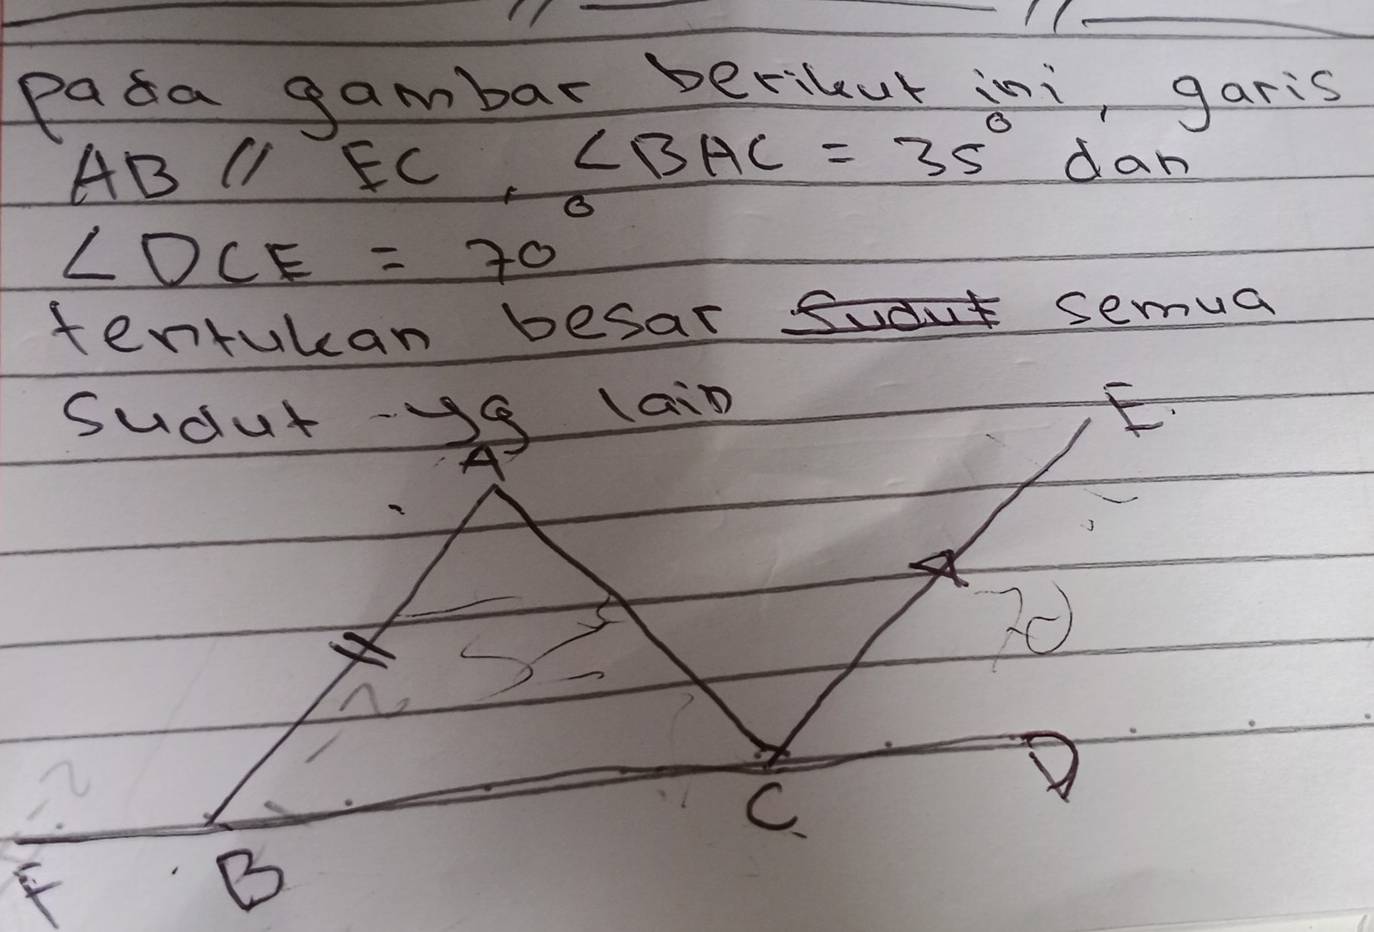 pada gambar berikut ini, garis
AB // EC, ∠BAC = 35° dan
∠DCE = 70°
tentukan besar ~~Sudut~~ semua
Sudut yg lain
A
E
70
D
C
B
F